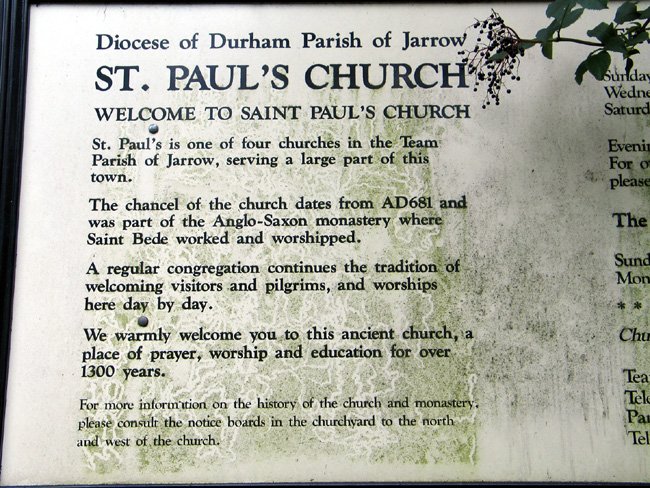 Diocese of Durham Parish of Jarrow
ST. PAUL'S CHURCH
WELCOME TO SAINT PAUL'S CHURCH
St. Paul's is one of four churches in the Team
Parish of Jarrow, serving a large part of this
town.
The chancel of the church dates from AD681 and
was part of the Anglo-Saxon monastery where
Saint Bede worked and worshipped.
A regular congregation continues the tradition of
welcoming visitors and pilgrims, and worships
here day by day.
We warmly welcome you to this ancient church, a
place of prayer, worship and education for over
1300 years.
For more information on the history of the church and monastery,
please consult the notice boards in the churchyard to the north
and west of the church.
Sunday
Wedne
Saturd
Evenin
For o
please
The
Sund
Mon
* *
Chu
Tea
Tele
Par
Tel